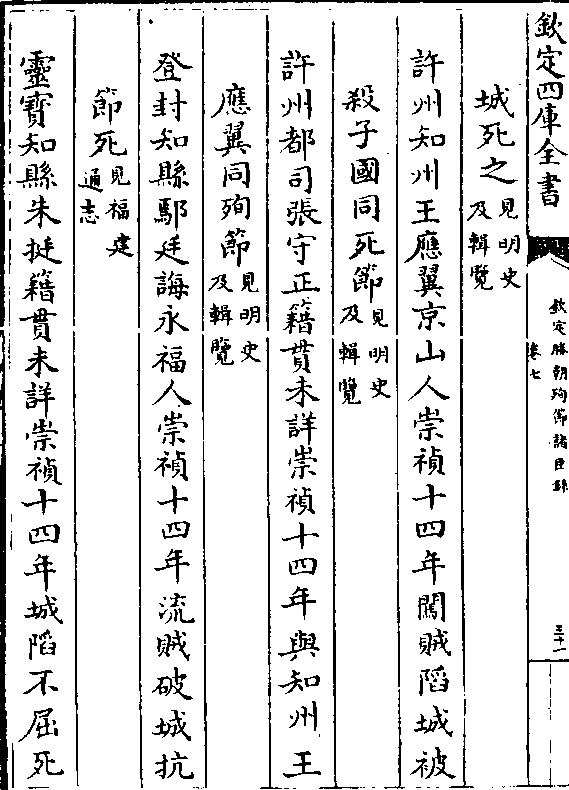 欽定四庫全書
欽定勝朝殉節諸臣錄
卷七
三十一
城死之見明史及輯覽
許州知州王應翼京山人崇禎十四年闖賊陷城被
殺子國同死節見明史及輯覽
許州都司張守正籍貫未詳崇禎十四年與知州王
應翼同殉節見明史及輯覽
登封知縣鄢廷誨永福人崇禎十四年流賊破城抗
節死見福建通志
靈寶知縣朱挺籍貫未詳崇禎十四年城陷不屈死